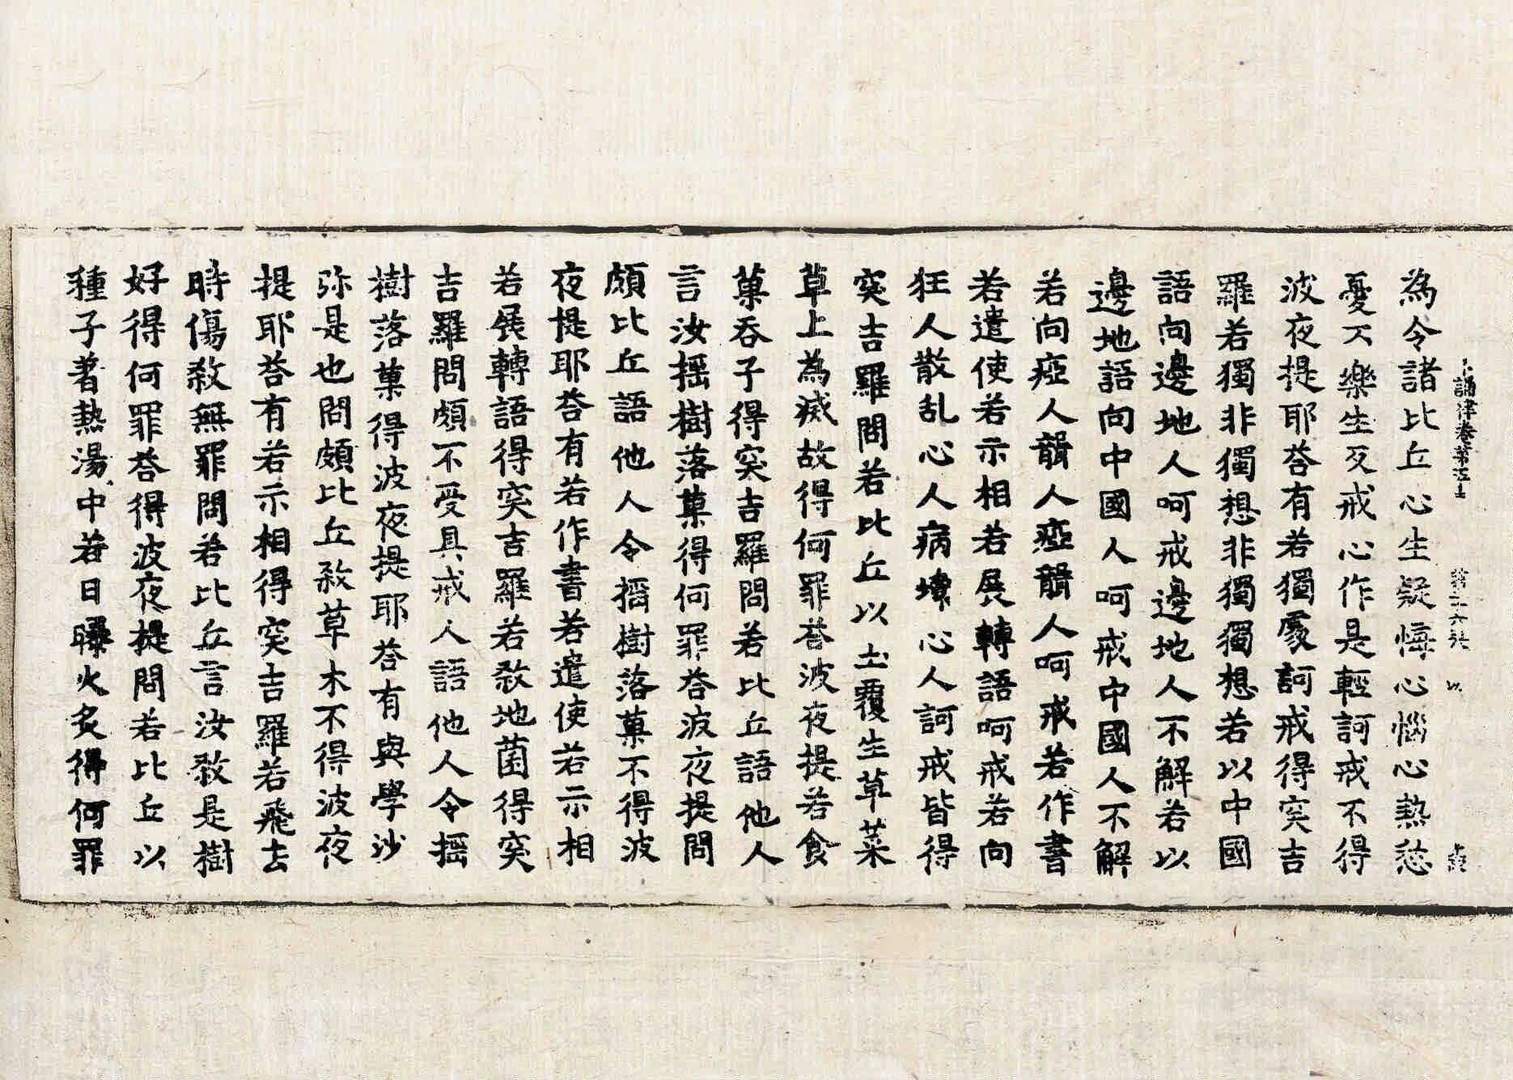 十誦律卷第五十三　第二十六張　以
為令諸比丘心生疑悔心惱心熱愁
憂不樂生反戒心作是輕訶戒不得
波夜提耶荅有若獨處訶戒得突吉
羅若獨非獨想非獨獨想若以中國
語向邊地人呵戒邊地人不解若以
邊地語向中國人呵戒中國人不解
若向瘂人聾人瘂聾人呵戒若作書
若遣使若示相若展轉語呵戒若向
狂人散乱心人病壞心人訶戒皆得
突吉羅問若比丘以土覆生草菜
草上為滅故得何罪荅波夜提若食
菓吞子得突吉羅問若比丘語他人
言汝揺樹落菓得何罪荅波夜提問
頗比丘語他人令揺樹落菓不得波
夜提耶荅有若作書若遣使若示相
若展轉語得突吉羅若敎地菌得突
吉羅問頗不受具戒人語他人令揺
樹落菓得波夜提耶荅有與學沙
弥是也問頗比丘敎草木不得波夜
提耶荅有若示相得突吉羅若飛去
時傷敎無罪問若比丘言汝敎是樹
好得何罪荅得波夜提問若比丘以
種子著熱湯中若日曝火炙得何罪